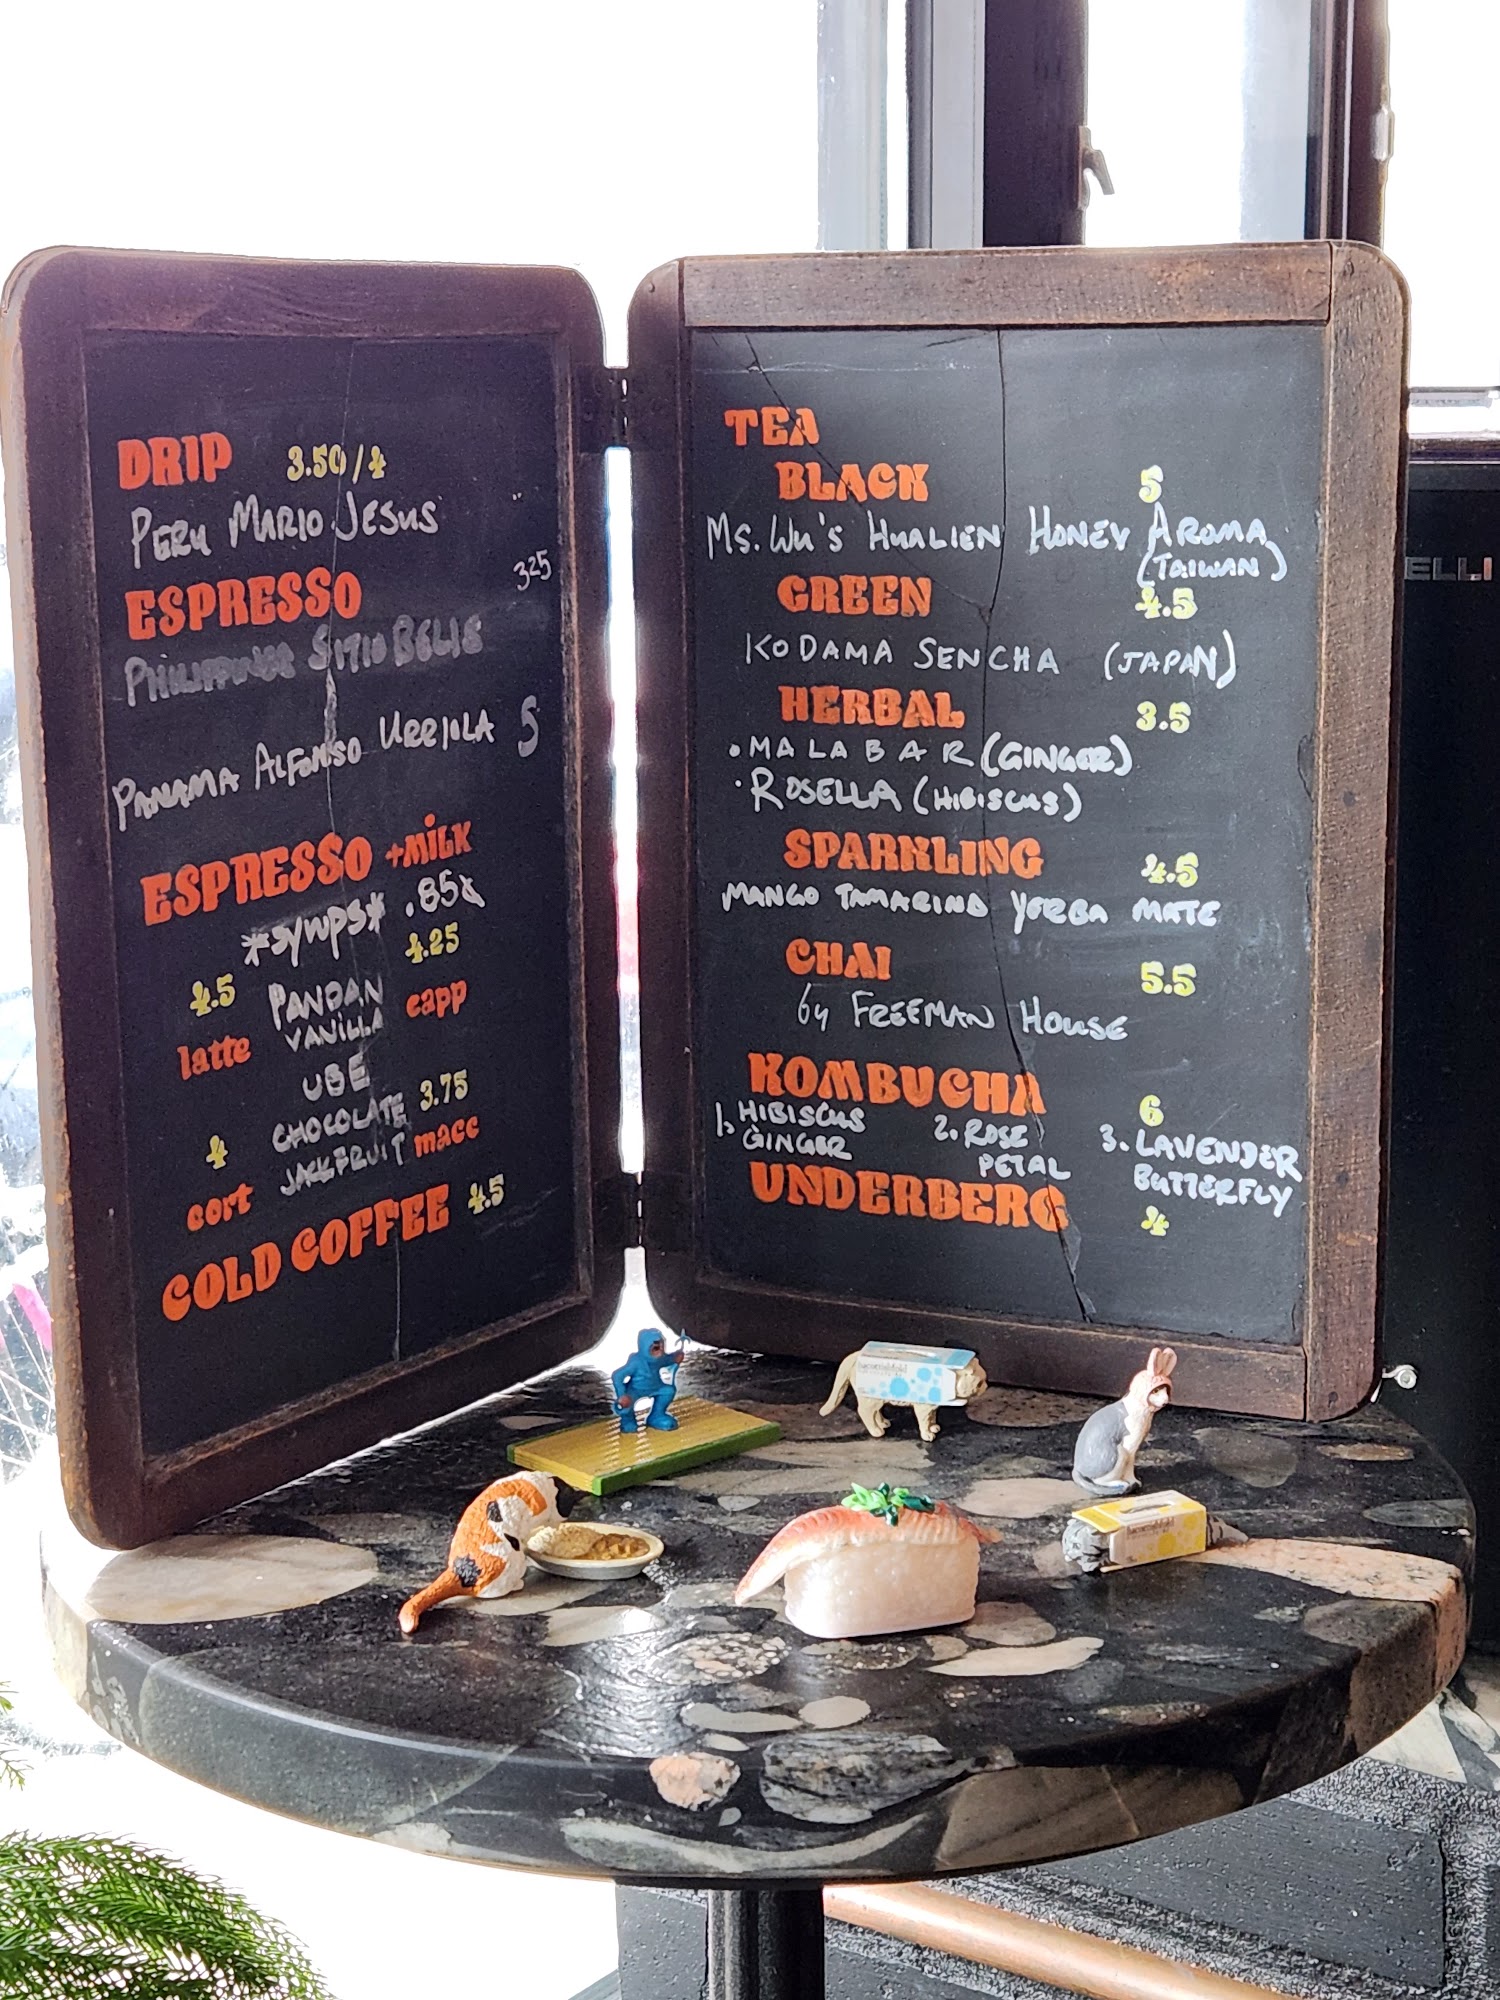 DRIP 3.50/4
PERU MARIO JESUS
ESPRESSO 325
PHILIPPINES SITIO BELIS
PANAMA ALFONSO URRIOLA 5
ESPRESSO +MiLK
*SYRUPS* .85¢
4.5 PANDAN 4.25
latte VANILLA capp
UBE
4 CHOCOLATE 3.75
cort JACKFRUIT macc
COLD COFFEE 4.5
TEA
BLACK 5
Ms. Wu's HUALIEN HONEY AROMA
(TAIWAN)
GREEN 4.5
KODAMA SENCHA (JAPAN)
HERBAL 3.5
• MALABAR (GINGER)
• ROSELLA (HIBISCUS)
SPARKLING 4.5
MANGO TAMARIND YERBA MATE
CHAI 5.5
by FREEMAN HOUSE
KOMBUCHA 6
1. HIBISCUS GINGER
2. ROSE PETAL
3. LAVENDER BUTTERFLY
UNDERBERG 4
ELLI